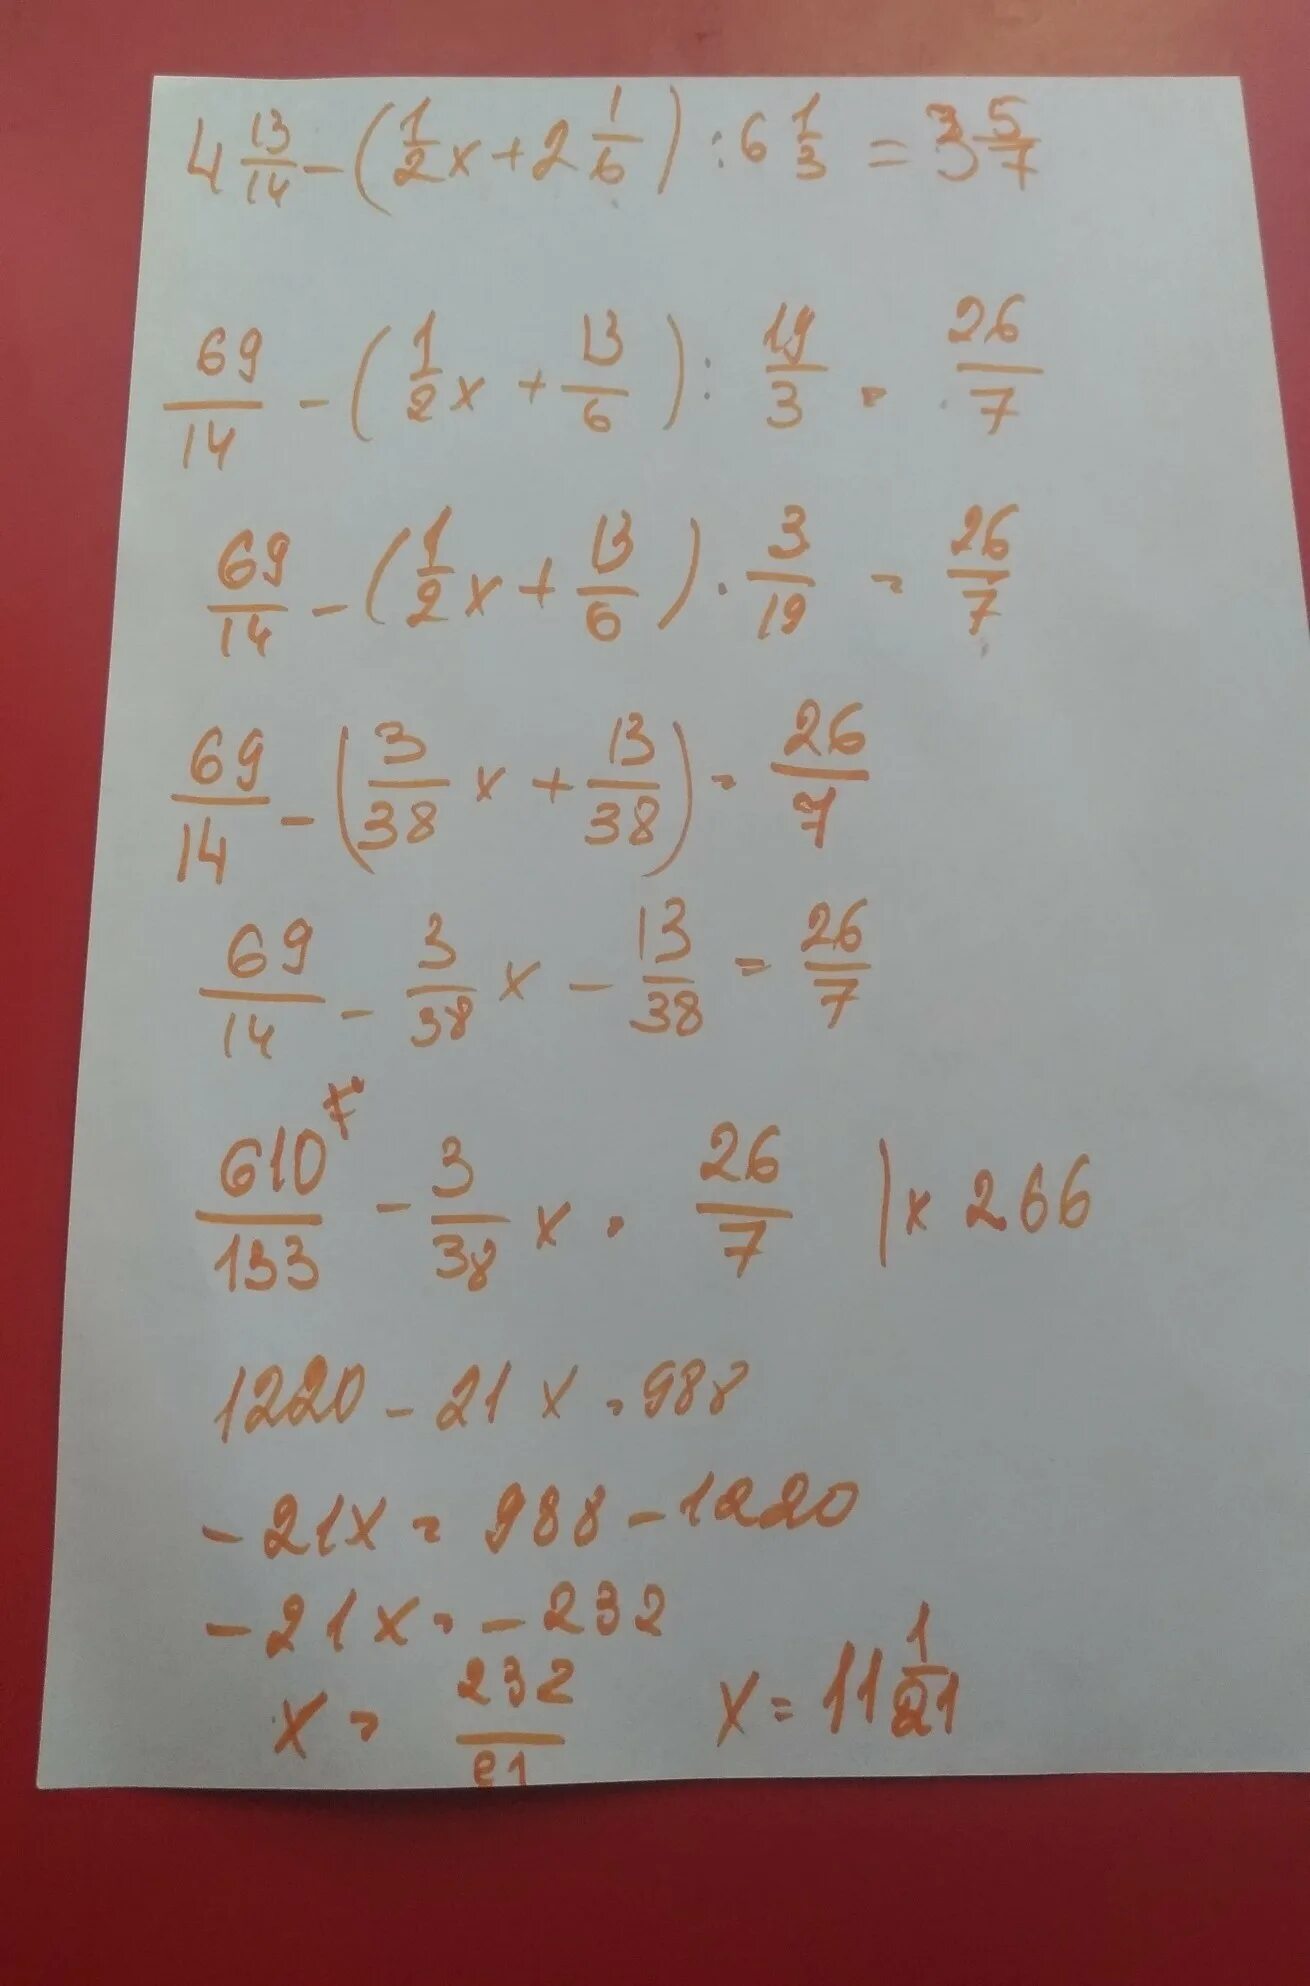 4 13/14 - (1/2 x + 2 1/6) : 6 1/3 = 3 5/7
69/14 - (1/2 x + 13/6) : 19/3 = 26/7
69/14 - (1/2 x + 13/6) · 3/19 = 26/7
69/14 - (3/38 x + 13/38) = 26/7
69/14 - 3/38 x - 13/38 = 26/7
610/133 - 3/38 x = 26/7 | × 266
1220 - 21 x = 988
- 21x = 988 - 1220
- 21x = - 232
x = 232/21 x = 11 1/21